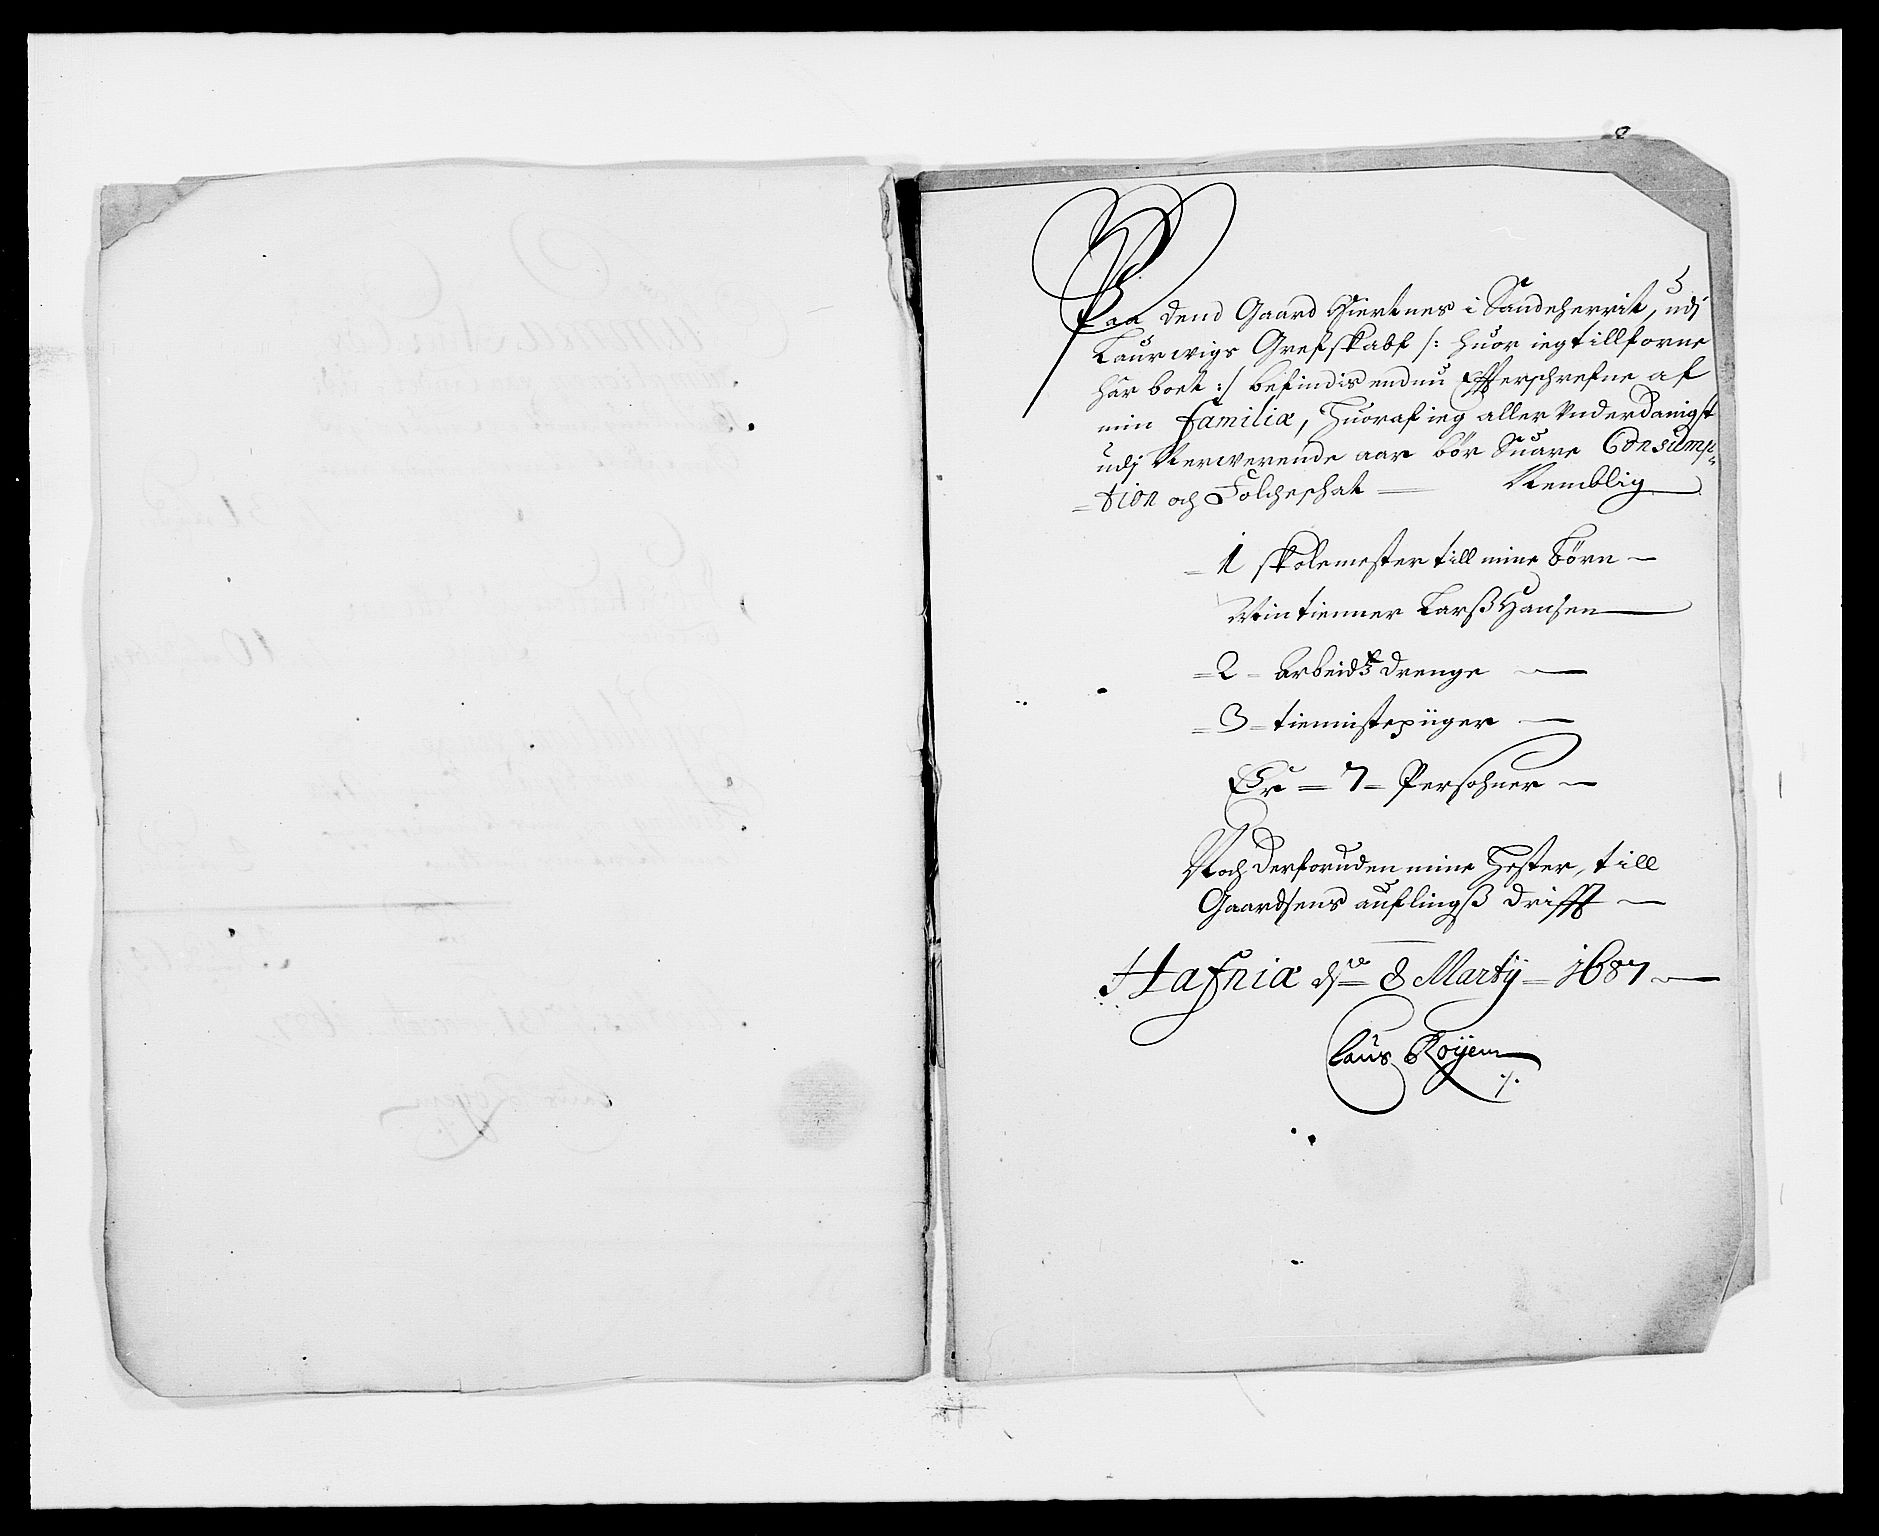 Paa dend Gaard Hiertnes i Sandeherrit, udj
Laurwigs Grefskabf /: huor ieg tillforne
har boet :/ befindis endnu Effterschrefne af
min familiæ, huoraf ieg aller Underdanigst
udj Nerwerende aar bör Suare Consump„
=tion och Folcheschat — Nemblig
= 1 skolemester till mine Börn —
Min tienner Larß Hansen —
= 2 = arbeidß drenge —
= 3 = tiennistepiiger —
Er = 7 = Persohner —
Noch derforuden mine Hester, till
Gaardsens auflingß drifft —
Hafniæ d 8 Martij = 1687 —
Claus Röyem